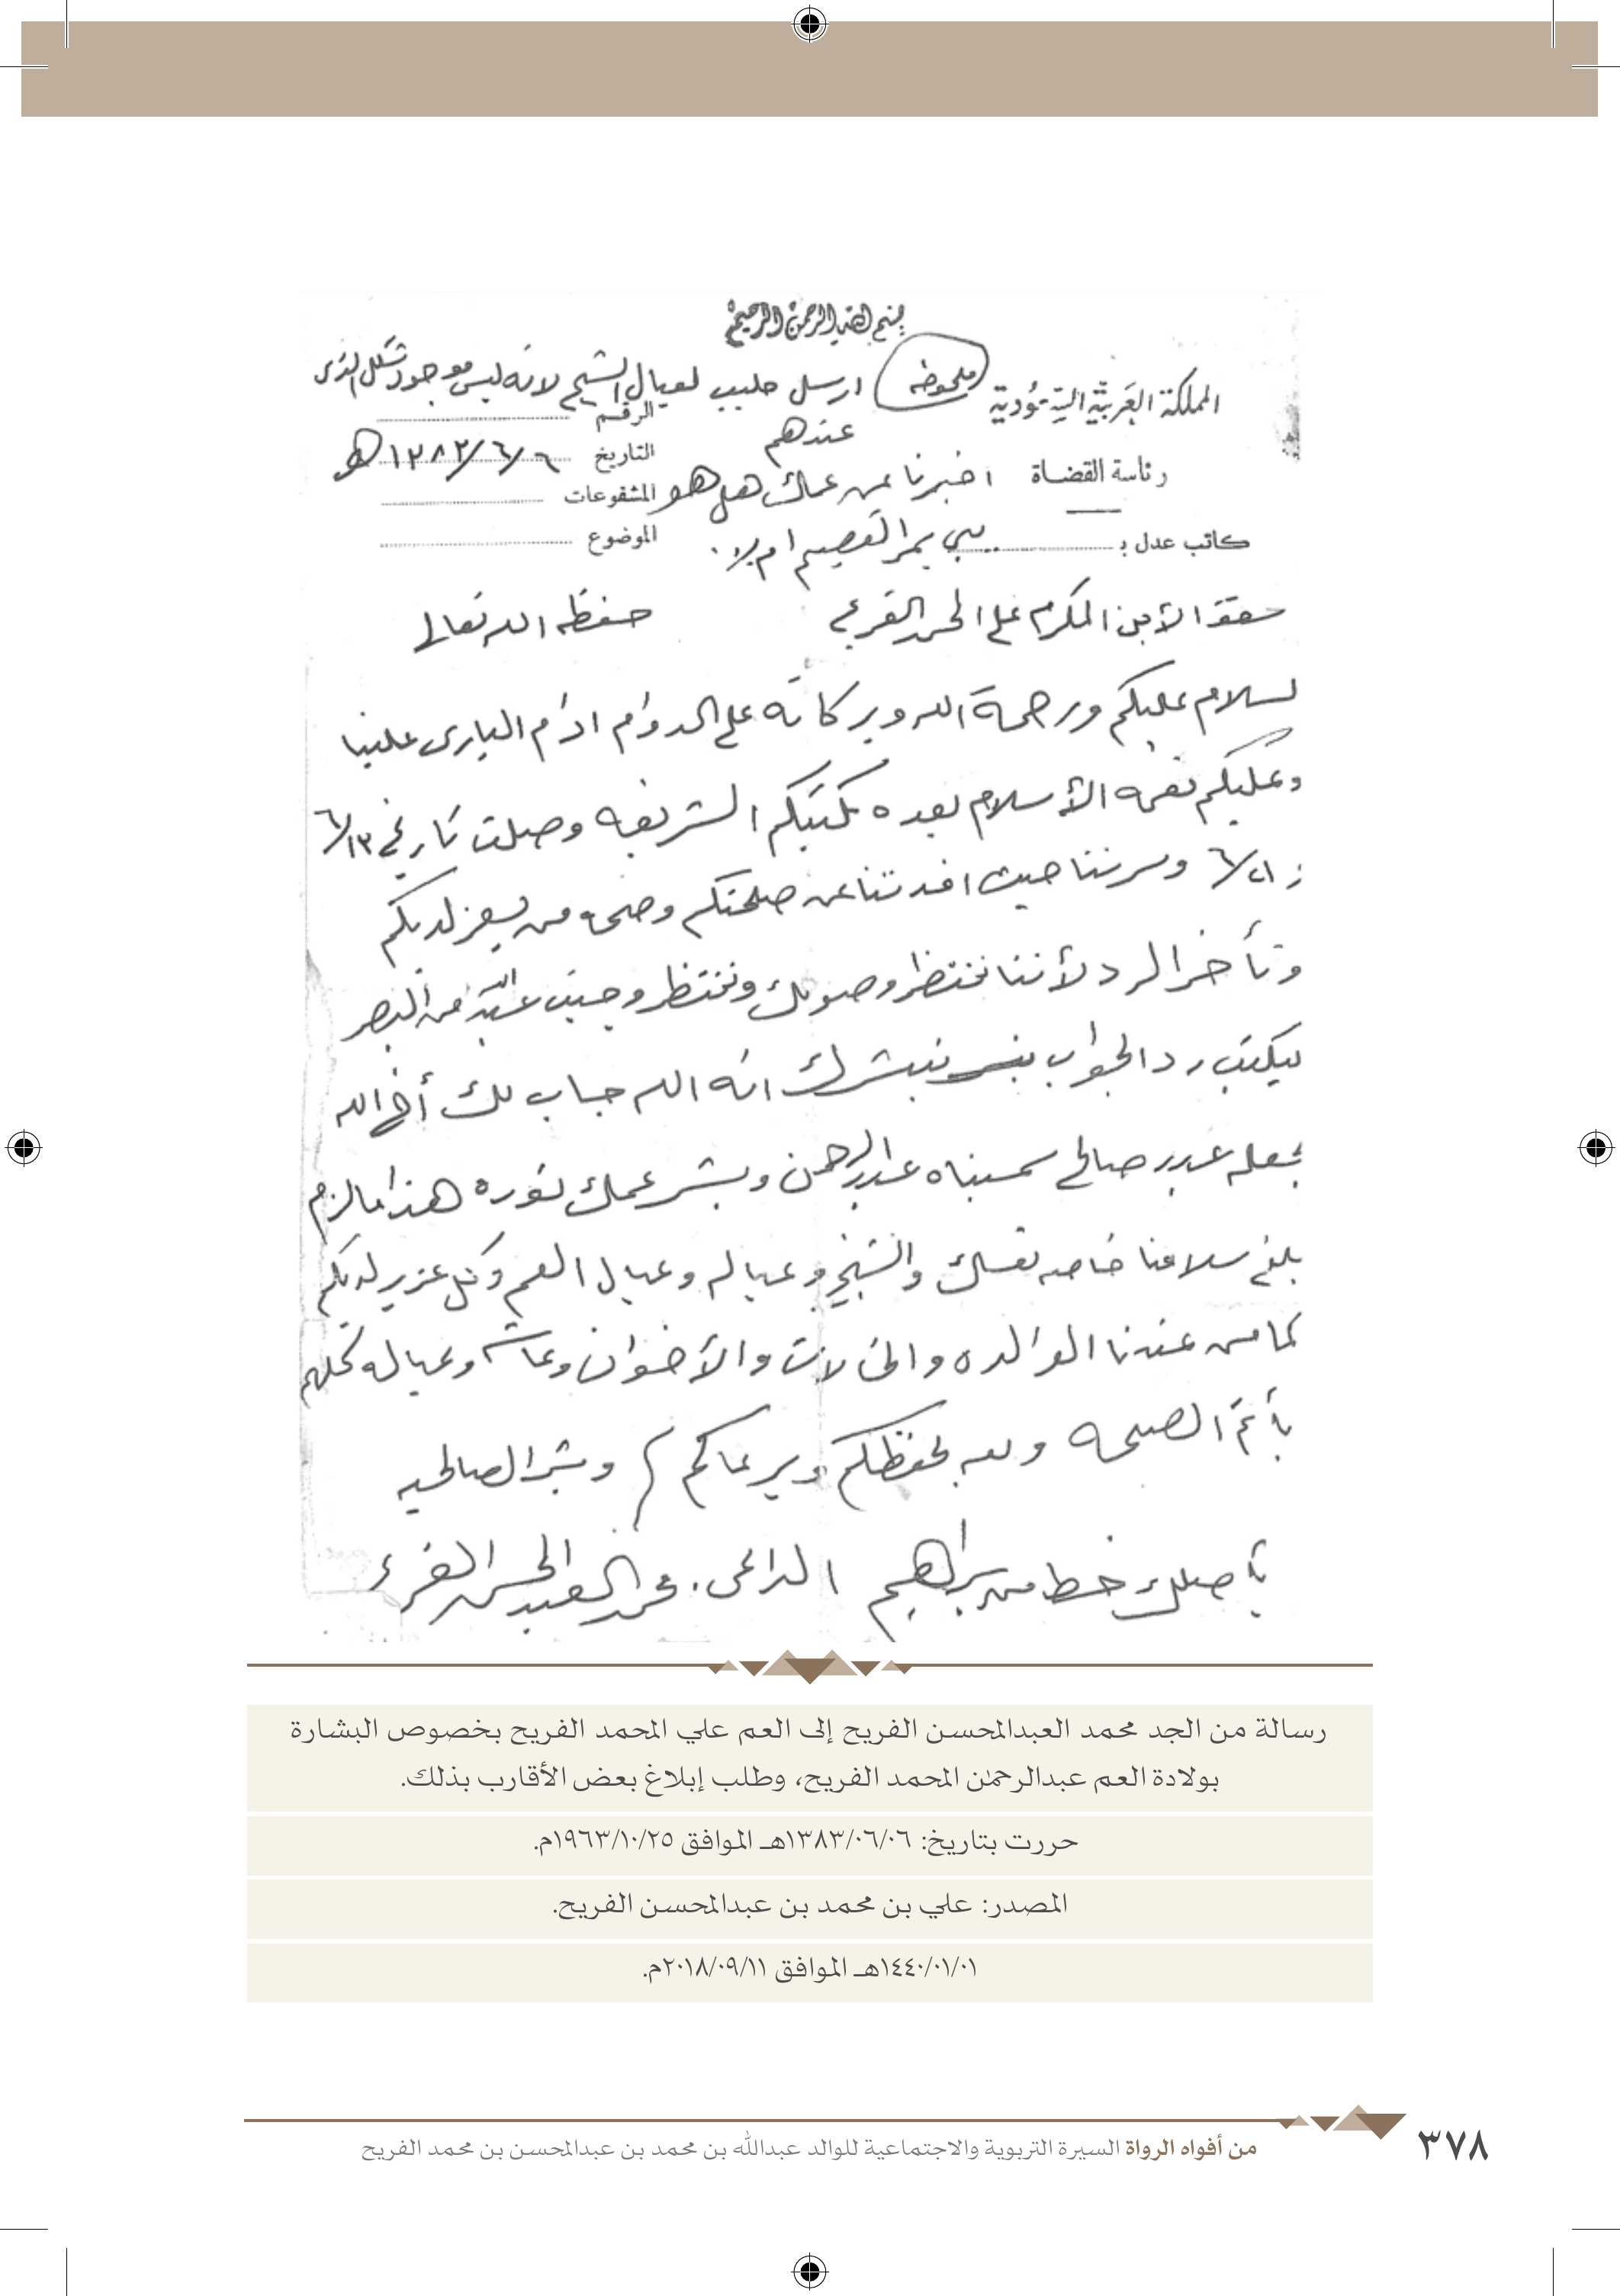 بسم الله الرحمن الرحيم
المملكة العربية السعودية
ملحوظه ارسل حليب لعيال الشيخ لانه ليس موجود شكل الذى
عندهم
الرقم
رئاسة القضاة
التاريخ ١٣٨٣/٦/٦هـ
اخبرنا عن عمك هل هو
المشفوعات
كاتب عدل بـ
يبي يمر القصيم ام لا
الموضوع
حضرة الأبن المكرم علي المحمد الفريح حفظه الله تعالى
لسلام عليكم ورحمة الله وبركاته على الدوام ادام البارى علينا
وعليكم نعمه الأسلام بعده كتبكم الشريفه وصلت تاريخ ٦/١٣
٦/٢١ وسرنا حيث افدتنا عن صحتكم وصحة من يعز لديكم
وتأخر الرد لأننا ننتظر وصولك وننتظر وجيت عبدالله من البصر
ليكتب رد الجواب نبشرك انه الله جاب لك أخ الله
يجعله عبد صالح سميناه عبدالرحمن وبشر عمك نوره هذا مالزم
بلغ سلامنا خاصه نفسك والشيخ وعياله وعيال العم وكل عزيز لديكم
كما من عندنا الوالده والخالات والأخوان وعياله كلهم
بأتم الصحه والله يحفظكم ويرعاكم وبشر الصالحيه
يأصلك خط من براهيم الداعى محمد العبدالمحسن الفريح
رسالة من الجد محمد العبدالمحسن الفريح إلى العم علي المحمد الفريح بخصوص البشارة
بولادة العم عبدالرحمٰن المحمد الفريح، وطلب إبلاغ بعض الأقارب بذلك.
حررت بتاريخ: ١٣٨٣/٠٦/٠٦هـ الموافق ١٩٦٣/١٠/٢٥م.
المصدر: علي بن محمد بن عبدالمحسن الفريح.
١٤٤٠/٠١/٠١هـ الموافق ٢٠١٨/٠٩/١١م.
من أفواه الرواة السيرة التربوية والاجتماعية للوالد عبدالله بن محمد بن عبدالمحسن بن محمد الفريح
٣٧٨